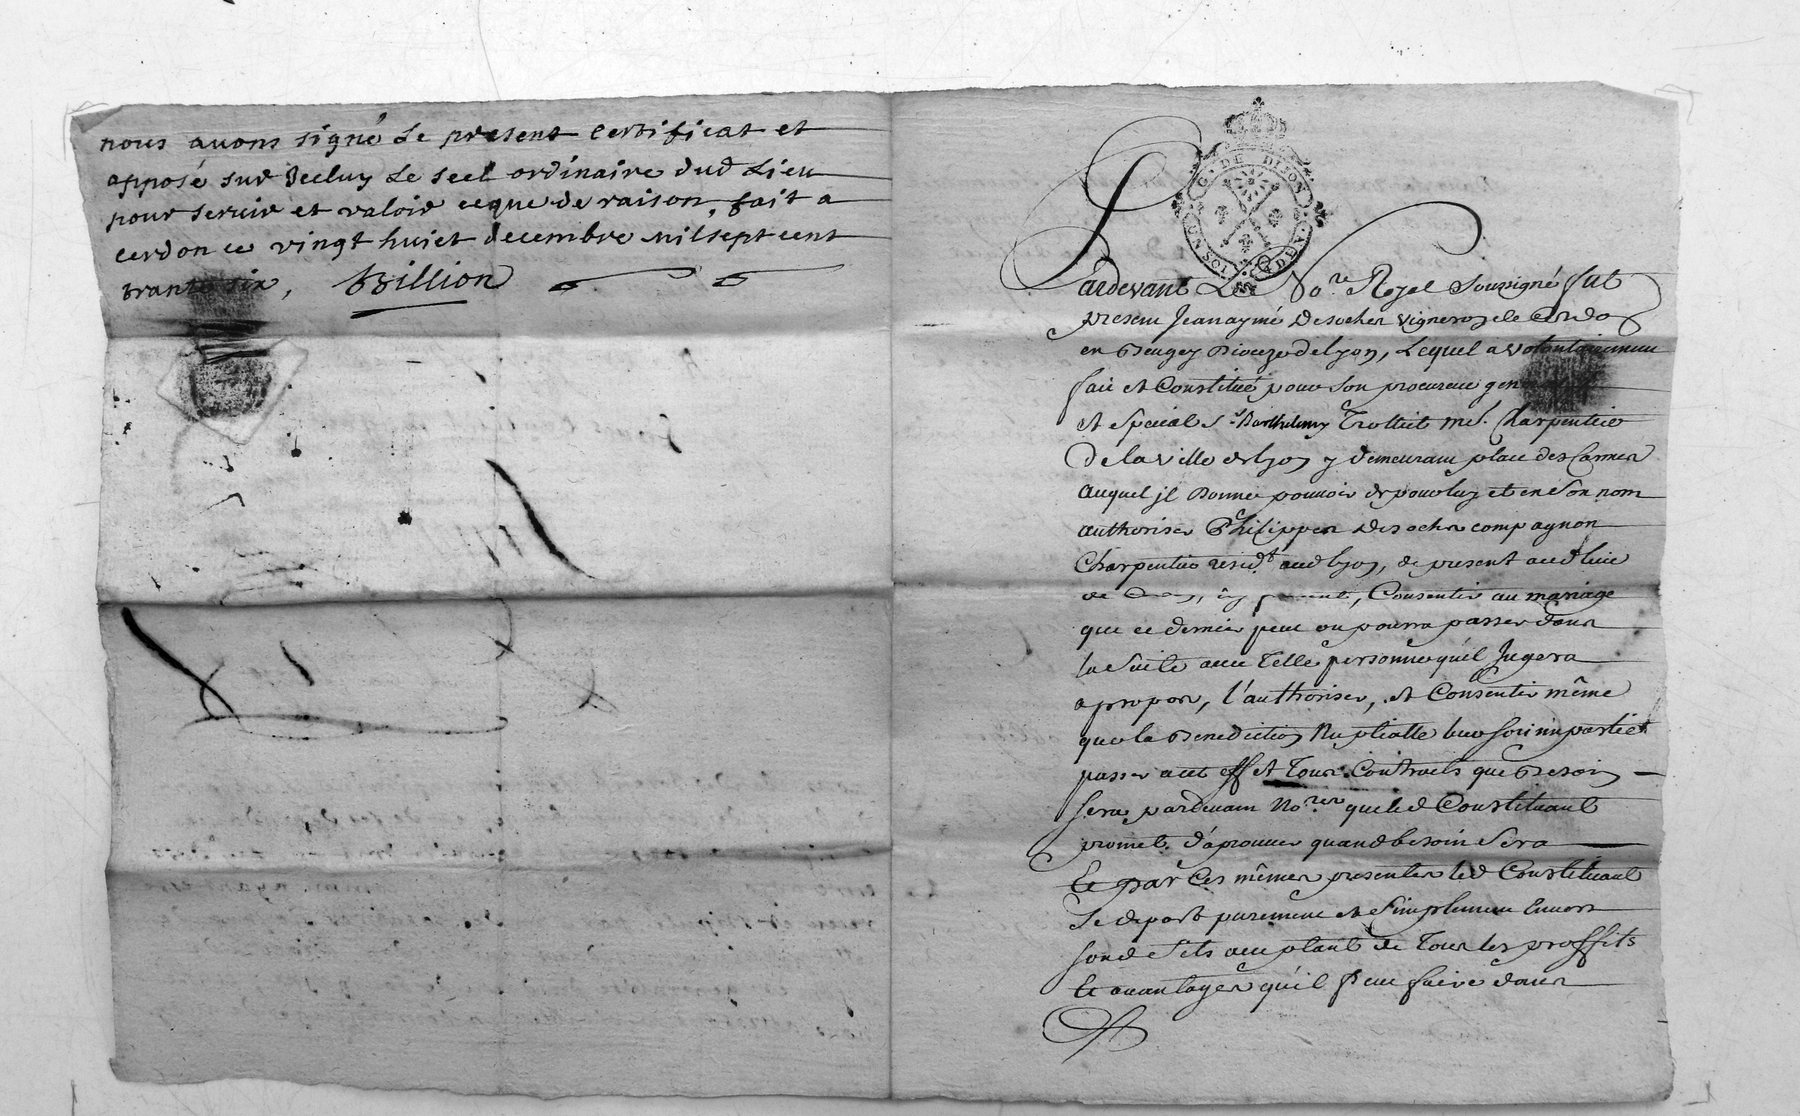 nous avons signé Le present Certificat et
apposé sur Jcelluy Le seel ordinaire dud Lieu
pour servir et valoir ceque de raison, fait a
cerdon ce vingt huict decembre mil sept cent
trante six, Billion
G. DE DIJON
UN SOL
Pardevant Le No.re Royal Soussigné fut
present Jean aymé Desocher vigneron de Cerdon
en Beugey Dioceze de lyon, Lequel a volontairement
fait et Constitué pour Son procureur general
et special Sr Barthelemy Trottiet me. Charpentier
De la ville de lyon y demeurant place des Carmes
auquel jl Donne pouvoir de pour luy et en Son nom
authoriser Philippes Desocher compagnon
Charpentier resid.t aud lyon, de present aud lieu
de Cerdon, Consentir au mariage
que ce dernier peut ou pourra passer dans
la Suite avec Telle personne qu'il Jugera
a propos, l'authoriser, et Consentir même
que la Benediction Nuptialle leur soit impartiet
passer a cet effet Tous Contracts que Besoin
Sera pardevant No.res que led Constituant
promet d'aprouver quand besoin Sera
Et par Ces mêmes presentes led Constituant
Se depart purement et Simplement Envers
sond fils acceptant de Tous les proffits
Et avantages qu'il peut faire dans